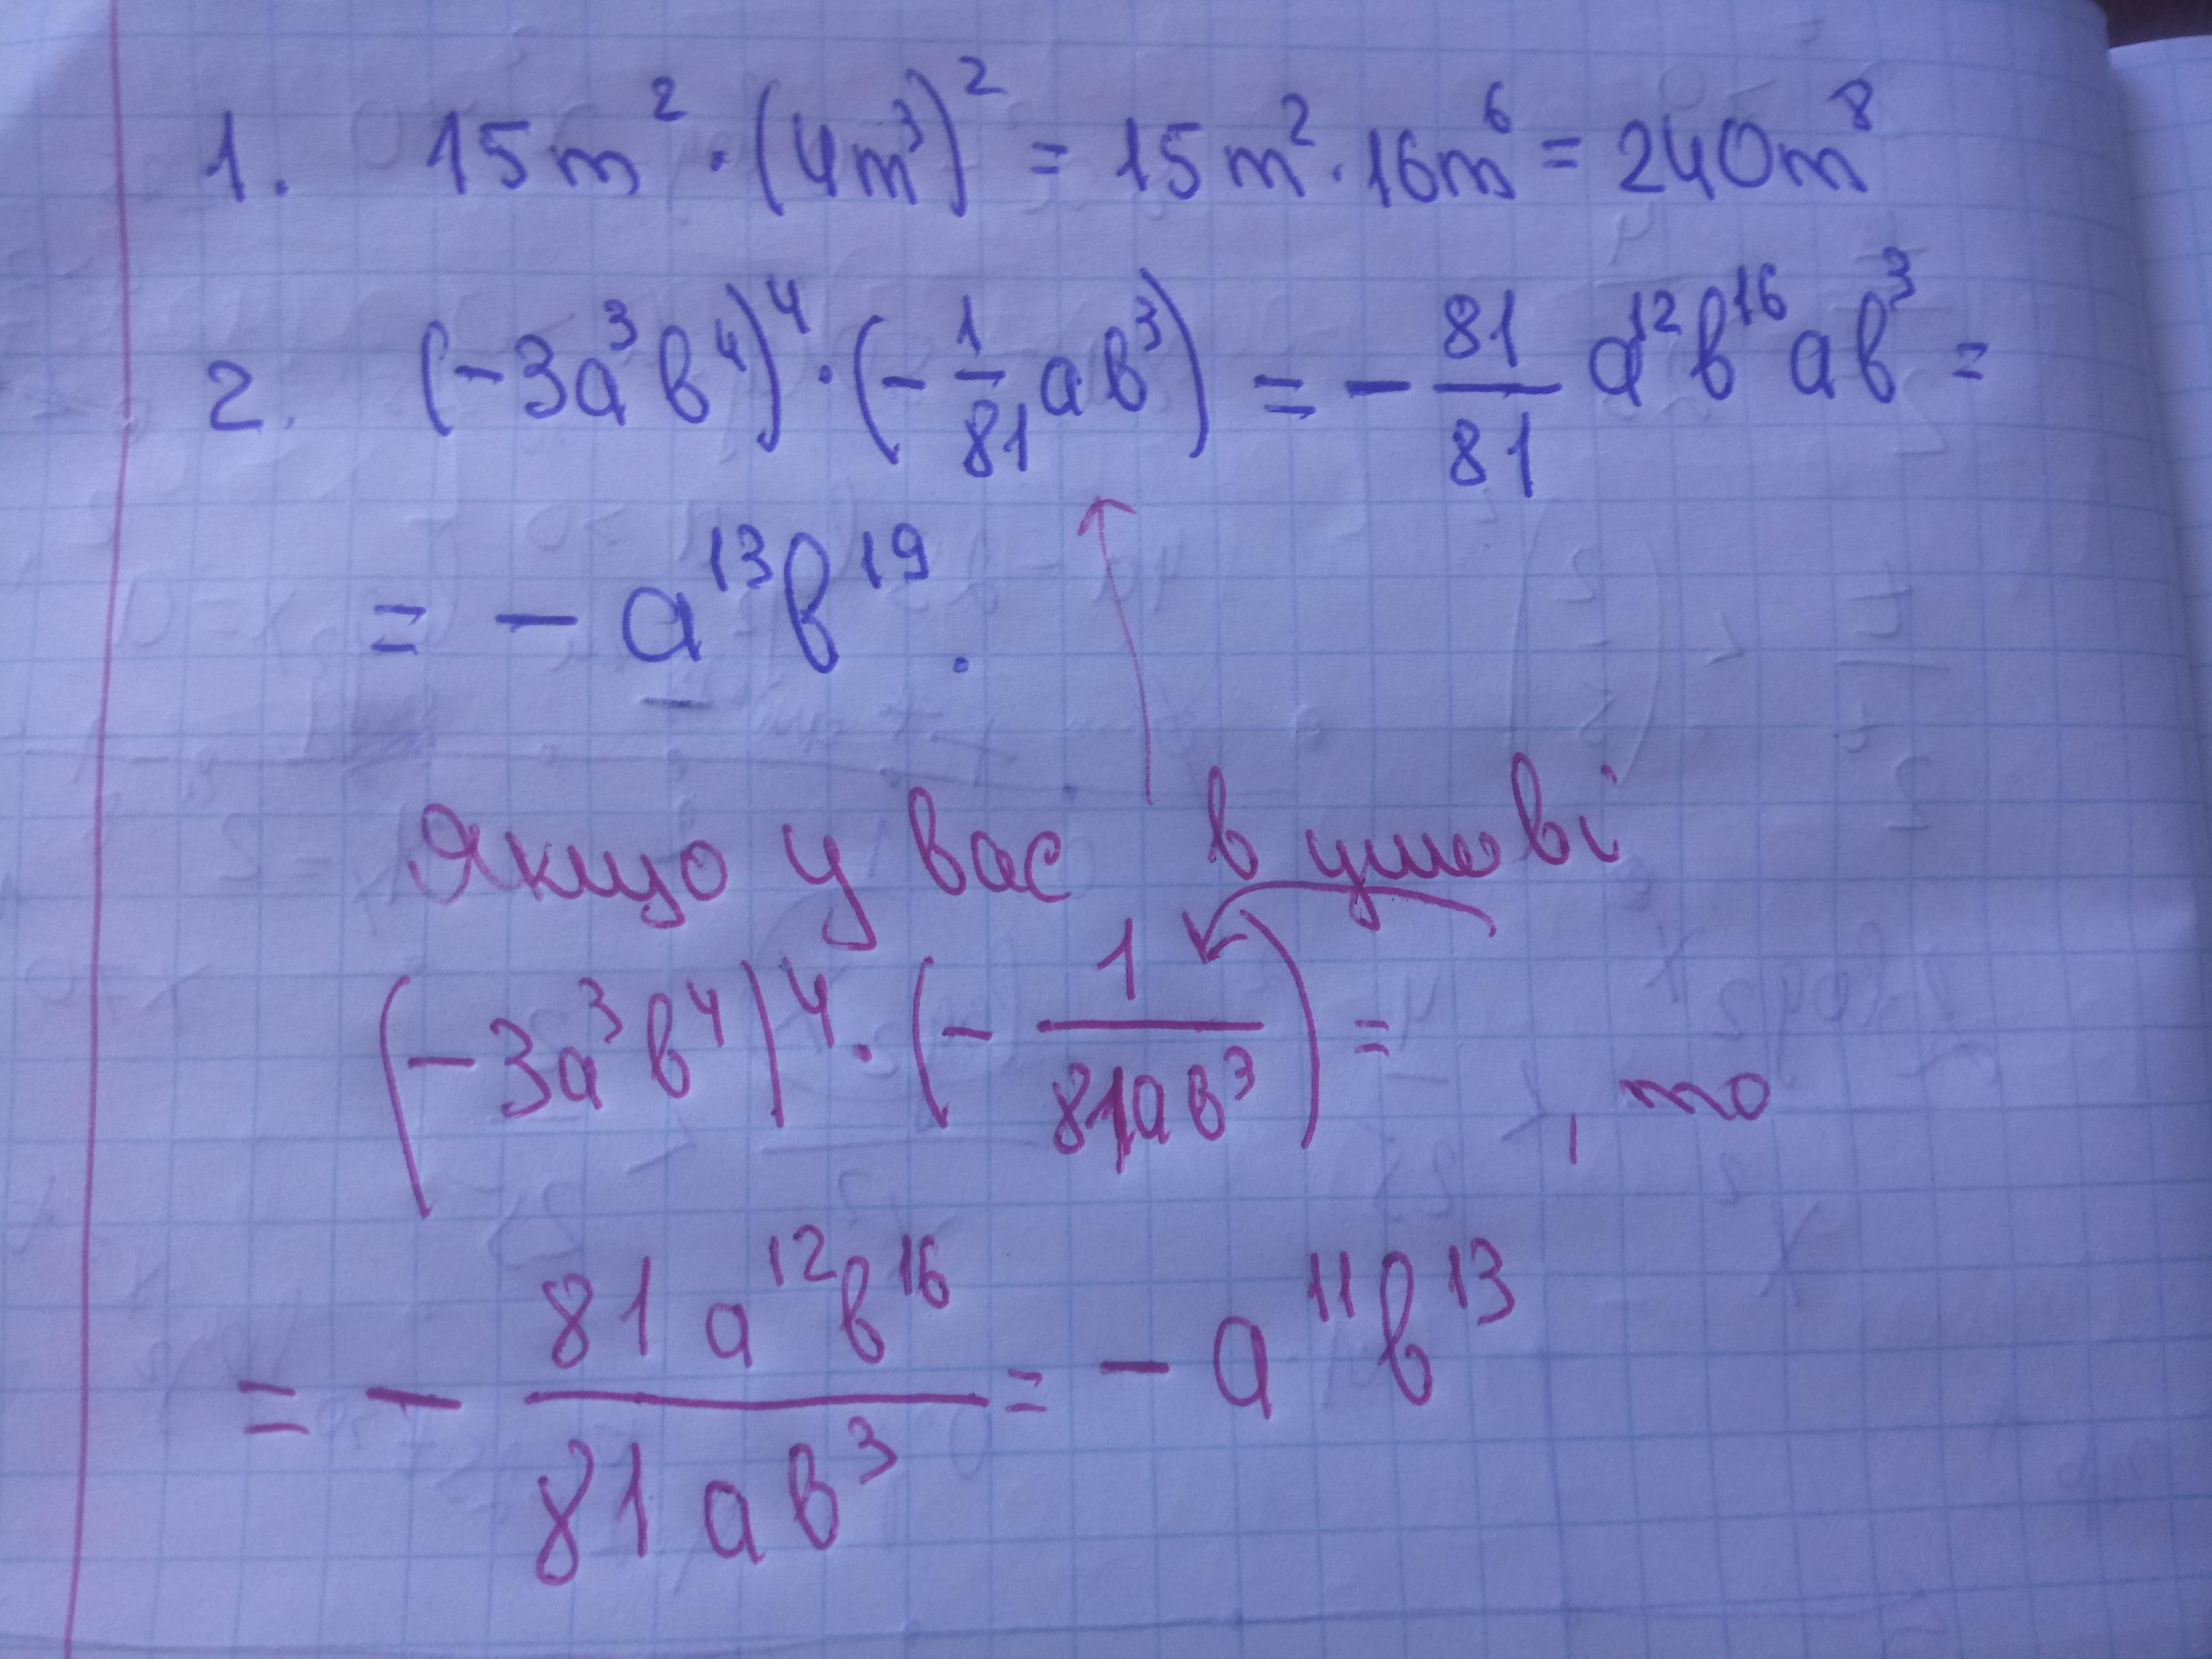 1. 15m² · (4m³)² = 15m² · 16m⁶ = 240m⁸
2. (-3a³b⁴)⁴ · (-1/81 ab³) = - 81/81 a¹²b¹⁶ab³ =
= - a¹³b¹⁹.
Якщо у вас в умові
(-3a³b⁴)⁴ · (- 1/81ab³) = , то
= - 81a¹²b¹⁶/81ab³ = - a¹¹b¹³